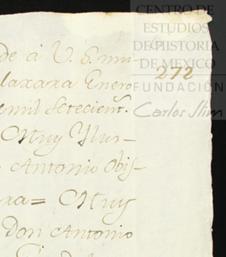 CENTRO DE
ESTUDIOS
DE HISTORIA
DE MEXICO
FUNDACIÓN
Carlos Slim
272
de â V. S. mu-
laxara Enero
emil Setecient.
Muy Ylus-
Antonio Obis-
ra = Muy
Don Antonio